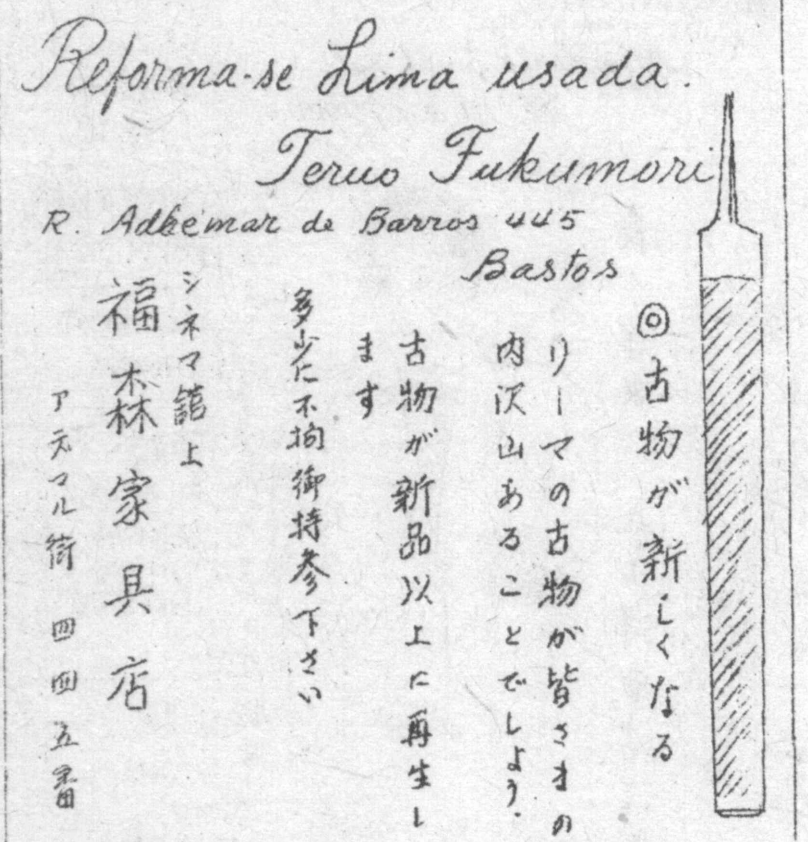 Reforma-se Lima usada.
Teruo Fukumori
R. Adhemar de Barros 445
Bastos
◎古物が新しくなる
リーマの古物が皆さまの
内沢山あることでしょう.
古物が新品以上に再生し
ます
多少に不拘御持参下さい
シネマ館上
福森家具店
アデマル街 四四五番